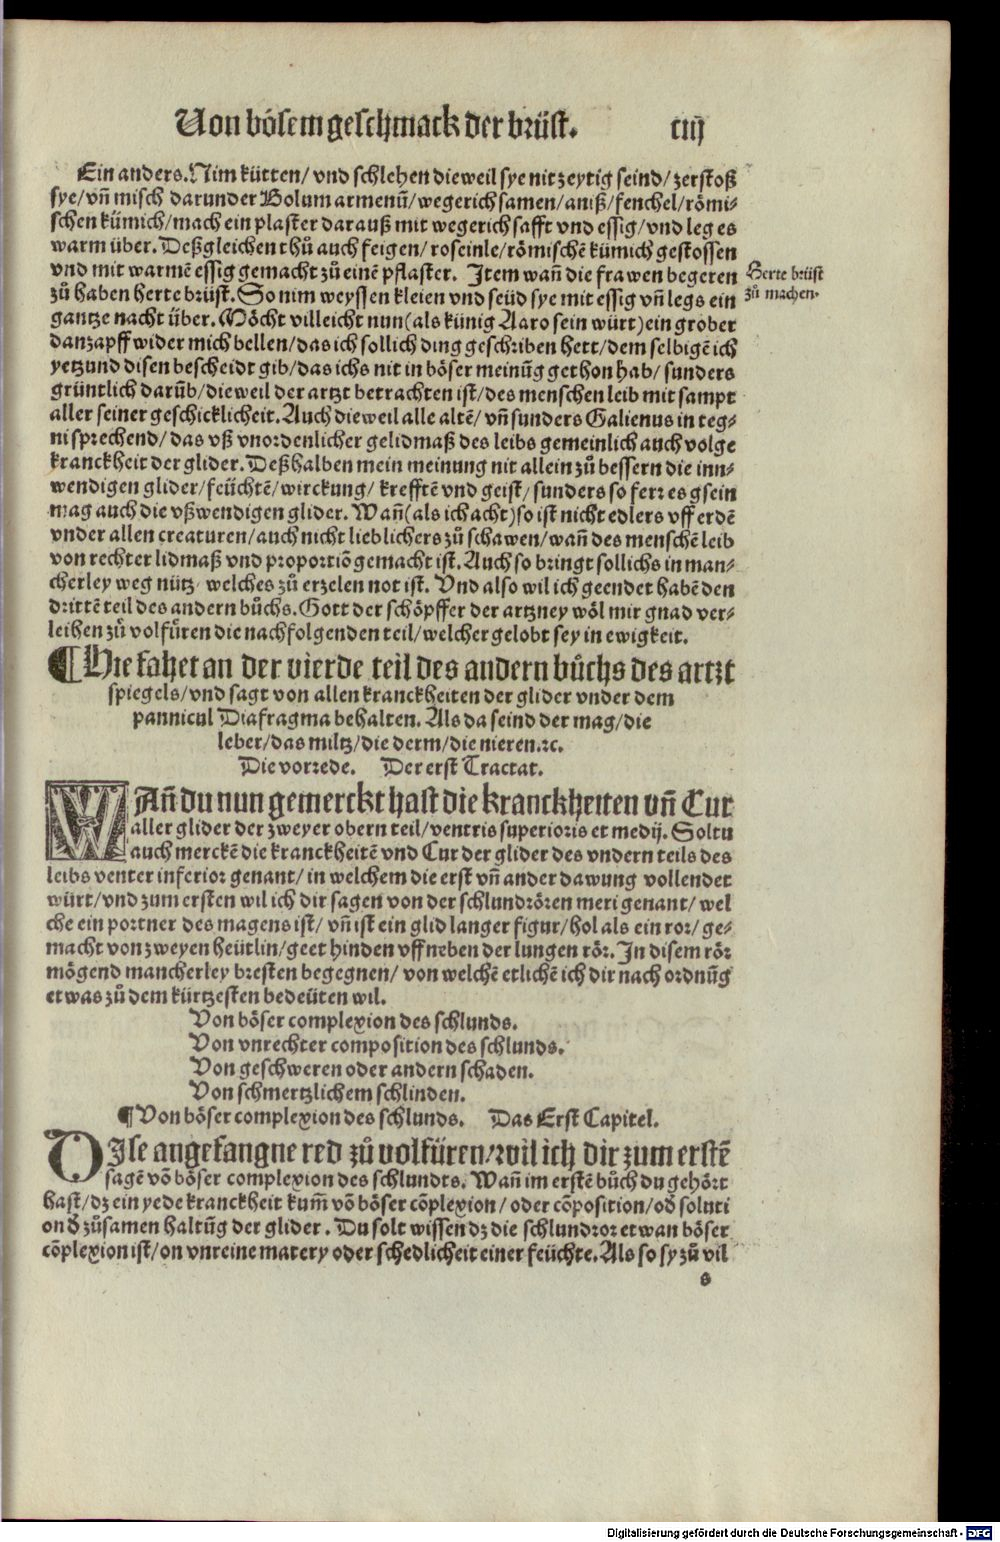 Von bösem geschmack der brüst. ciij
Ein anders. Nim kütten/ vnd schlehen dieweil sye nit zeytig seind/ zerstoß
sye/ vñ misch darunder Bolum armenũ/ wegerich samen/ aniß/ fenchel/ römi⸗
schen kümich/ mach ein plaster darauß mit wegerich safft vnd essig/ vnd leg es
warm über. Deßgleichen thů auch feigen/ roseinle/ römischẽ kümich gestossen
vnd mit warmẽ essig gemacht zů einẽ pflaster. Item wañ die frawen begeren
zů haben herte brüst. So nim weyssen kleien vnd seüd sye mit essig vñ legs ein
gantze nacht über. Möcht villeicht nun (als künig Aaro sein würt) ein grober
danzapff wider mich bellen/ das ich sollich ding geschriben hett/ dem selbigẽ ich
yetzund disen bescheidt gib/ das ichs nit in böser meinũg gethon hab/ sunders
grüntlich darũb/ dieweil der artzt betrachten ist/ des menschen leib mit sampt
aller seiner geschicklicheit. Auch dieweil alle altẽ/ vñ sunders Galienus in teg⸗
ni sprechend/ das vß vnordenlicher gelidmaß des leibs gemeinlich auch volge
kranckheit der glider. Deßhalben mein meinung nit allein zů bessern die inn⸗
wendigen glider/ feüchtẽ/ wirckung/ krefftẽ vnd geist/ sunders so ferr es gsein
mag auch die vßwendigen glider. Wañ (als ich acht) so ist nicht edlers vff erdẽ
vnder allen creaturen/ auch nicht lieblichers zů schawen/ wañ des menschẽ leib
von rechter lidmaß vnd proportiõ gemacht ist. Auch so bringt sollichs in man⸗
cherley weg nütz/ welches zů erzelen not ist. Vnd also wil ich geendet habẽ den
drittẽ teil des andern bůchs. Gott der schöpffer der artzney wöl mir gnad ver⸗
leihen zů volfüren die nachfolgenden teil/ welcher gelobt sey in ewigkeit.
Herte brüst
zů machen.
¶ Hie fahet an der vierde teil des andern bůchs des artzt
spiegels/ vnd sagt von allen kranckheiten der glider vnder dem
pannicul Diafragma behalten. Als da seind der mag/ die
leber/ das miltz/ die derm/ die nieren. ꝛc.
Die vorrede. Der erst Tractat.
WAñ du nun gemerckt hast die kranckheiten vñ Cur
aller glider der zweyer obern teil/ ventris superioris et medij. Soltu
auch merckẽ die kranckheitẽ vnd Cur der glider des vndern teils des
leibs venter inferior genant/ in welchem die erst vñ ander dawung vollendet
würt/ vnd zum ersten wil ich dir sagen von der schlundrören meri genant/ wel
che ein portner des magens ist/ vñ ist ein glid langer figur/ hol als ein ror/ ge⸗
macht von zweyen heütlin/ geet hinden vff neben der lungen rör. In disem rör
mögend mancherley bresten begegnen/ von welchẽ etlichẽ ich dir nach ordnũg
etwas zů dem kürtzesten bedeüten wil.
Von böser complexion des schlunds.
Von vnrechter composition des schlunds.
Von geschweren oder andern schaden.
Von schmertzlichem schlinden.
¶ Von böser complexion des schlunds. Das Erst Capitel.
DIse angefangne red zů volfüren/ wil ich dir zum erstẽ
sagẽ võ böser complexion des schlundts. Wañ im erstẽ bůch du gehört
hast/ dz ein yede kranckheit kum̃ võ böser cõplexion/ oder cõposition/ oď soluti
on ď zůsamen haltũg der glider. Du solt wissen dz die schlundror etwan böser
cõplexion ist/ on vnreine matery oder schedlicheit einer feüchte. Als so sy zů vil
s
Digitalisierung gefördert durch die Deutsche Forschungsgemeinschaft - DFG